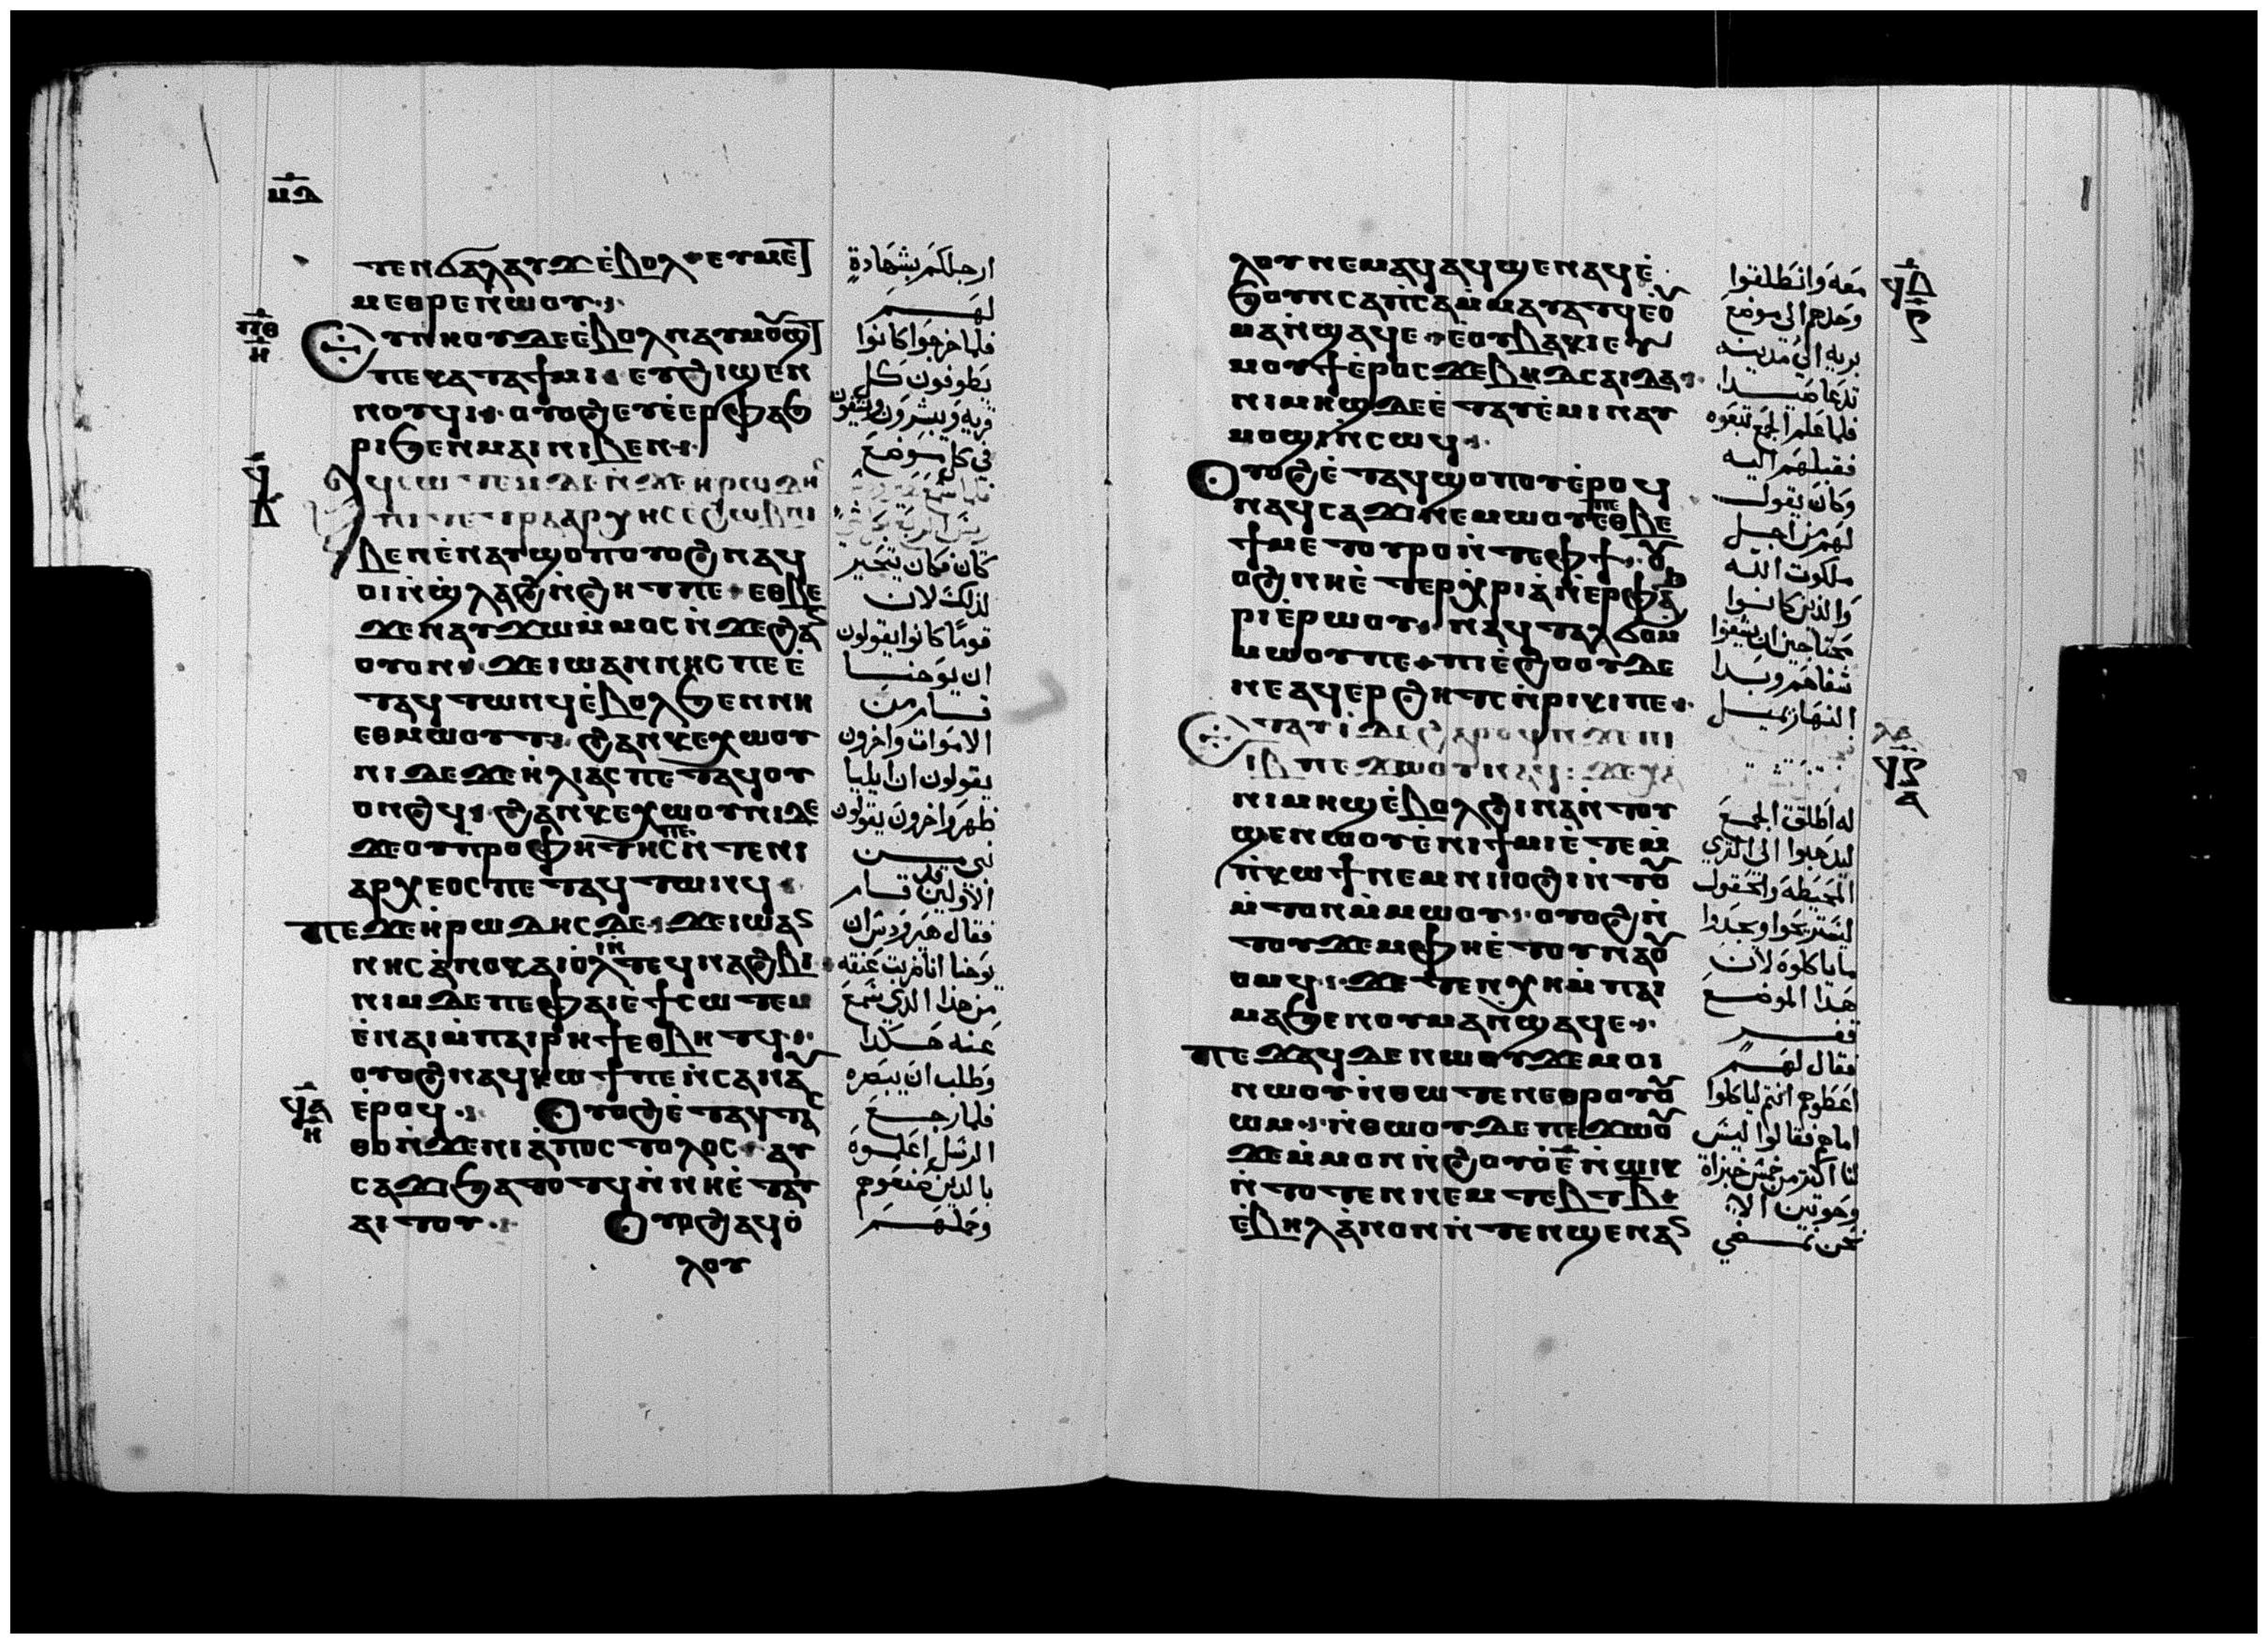 ⲙⲇ
ⲧⲉⲛϭⲁⲗⲁⲩϫ ⲉ̇ⲃⲟⲗ· ⲉⲩⲙⲉ
ⲙⲉⲑⲣⲉ ⲛ̇ⲱⲟⲩ
ⲡⲑ ⲏ
ⲉⲩⲛⲏⲟⲩ ⲇⲉ ⲉ̇ⲃⲟⲗ ⲛⲁⲩⲙⲟϣ
ⲡⲉ ⲕⲁⲧⲁ ϯⲙⲓ ⲉⲩϩⲓϣⲉⲛ
ⲛⲟⲩϥⲓ ⲟⲩⲟϩ ⲉⲩⲉⲣⲫⲁϧ
ⲣⲓ ϧⲉⲛ ⲙⲁⲓ ⲛⲓⲃⲉⲛ
ϥ ⲃ
ⲁϥⲥⲱⲧⲉⲙ ⲇⲉ ⲛ̇ϫⲉ ⲏⲣⲱⲇⲏⲥ
ⲡⲓⲧⲉⲧⲣⲁⲁⲣⲭⲏⲥ ⲉ̇ϩⲱⲃ ⲛⲓ
ⲃⲉⲛ ⲉ̇ⲛⲁⲩϣⲟⲡ ⲟⲩⲟϩ ⲛⲁϥ
ⲟⲓ ⲛ̇ϣⲗⲁϩ ⲛ̇ϩⲏⲧ ⲡⲉ· ⲉⲑⲃⲉ
ϫⲉ ⲛⲁⲩϫⲱ ⲙ̇ⲙⲟⲥ ⲛ̇ϫⲉ ϩⲁⲛ
ⲟⲩⲟⲛ ϫⲉ ⲓⲱⲁⲛⲛⲏⲥ ⲡⲉ ⲉ̇
ⲧⲁϥⲧⲱⲛϥ ⲉ̇ⲃⲟⲗ ϧⲉⲛ ⲛⲏ
ⲉⲑⲙⲱⲟⲩⲧ· ϩⲁⲛⲕⲉⲭⲱⲟⲩ
ⲛⲓ ⲇⲉ ϫⲉ ⲏ̇ⲗⲓⲁⲥ ⲡⲉⲧⲁϥⲟⲩ
ⲟⲛϩϥ· ϩⲁⲛⲕⲉⲭⲱⲟⲩⲛⲓ ⲇⲉ
ϫⲉ ⲟⲩⲡⲣⲟⲫⲏⲧⲏⲥ ⲡⲉ ⲛ̇ⲧⲉ ⲛⲓ
ⲁⲣⲭⲉⲟⲥ ⲡⲉⲧⲁϥⲧⲱⲛϥ
ⲡⲉϫⲉ ⲏⲣⲱⲇⲏⲥ ⲇⲉ ϫⲉ ⲓⲱⲁⲛ
ⲛⲏⲥ ⲁ̇ⲛⲟⲕ ⲁⲓⲱ̇ⲗⲓ ⲛ̇ⲧⲉϥⲛⲁϩⲃⲓ
ⲛⲓⲙ ⲇⲉ ⲡⲉ ⲫⲁⲓ ⲉϯⲥⲱⲧⲉⲙ
ⲉ̇ⲛⲁⲓ ⲙ̇ⲡⲁⲓⲣⲏϯ ⲉⲑⲃⲏⲧϥ
ⲟⲩⲟϩ ⲛⲁϥⲕⲱϯ ⲡⲉ ⲛ̇ⲥⲁ ⲛⲁⲩ
ϥⲁ ⲏ
ⲉ̇ⲣⲟϥ ⲟⲩⲟϩ ⲉ̇ⲧⲁⲩⲧⲁⲥ
ⲑⲟ ⲛ̇ϫⲉ ⲛⲓⲁ̇ⲡⲟⲥⲧⲟⲗⲟⲥ ⲁⲩ
ⲥⲁϫⲓ ϧⲁⲧⲟⲧϥ ⲛ̇ⲛⲏ ⲉ̇ⲧⲁⲩ
ⲁⲓⲧⲟⲩ ⲟⲩⲟϩ ⲁϥⲟ̇
ⲗⲟⲩ
ارجلكم بشهادة
لهم
فلما خرجوا كانوا
يطوفون كل
قرية ويبشرون ويشفون
في كل موضع
كان فكان يتحير
لذلك لان
قوما كانوا يقولون
ان يوحنا
قام من
الاموات واخرون
يقولون ان ايليا
ظهر واخرون يقولون
نبي من
الاولين قام
فقال هيرودس ان
يوحنا انا ضربت عنقه
من هذا الذي نسمع
عنه هكذا
وطلب ان يبصره
فلما رجع
الرسل اعلموه
بالذين صنعوهم
وحملهم
ⲗⲟⲩ ⲛⲉⲙⲁϥ ⲁϥϣⲉⲛⲁϥ ⲉ̇
ϧⲟⲩⲛ ⲥⲁⲡ̇ⲥⲁ ⲙ̇ⲙⲁⲩⲁⲧϥ ⲉ̇ⲟⲩ
ⲙⲁ ⲛ̇ϣⲁϥⲉ· ⲉ̇ⲟⲩⲃⲁⲕⲓ ⲉⲩ
ⲙⲟⲩϯ ⲉ̇ⲣⲟⲥ ϫⲉ ⲃⲏⲇⲥⲁⲓⲇⲁ
ⲛⲓⲙⲏϣ ⲇⲉ ⲉ̇ⲧⲁⲩⲉ̇ⲙⲓ ⲛⲁⲩ
ⲙⲟϣⲓ ⲛ̇ⲥⲱϥ
ⲟⲩⲟϩ ⲉ̇ⲧⲁϥϣⲟⲡⲟⲩ ⲉ̇ⲣⲟϥ
ⲛⲁϥⲥⲁϫⲓ ⲛⲉⲙⲱⲟⲩ ⲡⲉ ⲉⲑⲃⲉ
ϯⲙⲉⲧⲟⲩⲣⲟ ⲛ̇ⲧⲉ ⲫϯ ⲟⲩ
ⲟϩ ⲛⲏ ⲉ̇ⲧⲉⲣⲭⲣⲓⲁ ⲛ̇ⲉⲣⲫⲁϧ
ⲣⲓ ⲉ̇ⲣⲱⲟⲩ ⲛⲁϥⲧⲁⲗϭⲟ ⲙ̇
ⲙⲱⲟⲩ ⲡⲉ· ⲡⲓⲉ̇ϩⲟⲟⲩ ⲇⲉ
ⲛⲉ ⲁϥⲉⲣϩⲏⲧⲥ ⲛ̇ⲣⲓⲕⲓ ⲡⲉ
ⲉⲧⲁⲩⲓ̇ ⲇⲉ ϩⲁⲣⲟϥ ⲛ̇ϫⲉ ⲡⲓ
ⲓⲃ ⲡⲉϫⲱⲟⲩ ⲛⲁϥ ϫⲉ ⲭⲁ
ⲛⲓⲙⲏϣ ⲉ̇ⲃⲟⲗ ϩⲓⲛⲁ ⲛ̇ⲧⲟⲩ
ϣⲉⲛⲱⲟⲩ ⲉ̇ⲛⲓϯⲙⲓ ⲉ̇ⲧⲉⲙ
ⲡ̇ⲕⲱϯ ⲛⲉⲙ ⲛⲓⲓⲟϩⲓ ⲛ̇ⲧⲟⲩ
ⲙ̇ⲧⲟⲛ ⲙ̇ⲙⲱⲟⲩ ⲟⲩⲟϩ ⲛ̇
ⲧⲟⲩϫⲉⲙ ⲫⲏ ⲉ̇ⲧⲟⲩⲛⲁⲟⲩ
ⲟⲙϥ ϫⲉ ⲧⲉⲛⲭⲏ ⲙ̇ⲡⲁⲓ
ⲙⲁ ϧⲉⲛ ⲟⲩⲙⲁ ⲛ̇ϣⲁϥⲉ
ⲡⲉϫⲁϥ ⲇⲉ ⲛⲱⲟⲩ ϫⲉ ⲙⲟⲓ
ⲛⲱⲟⲩ ⲛ̇ⲑⲱⲧⲉⲛ ⲉⲑⲣⲟⲩⲟⲩ
ⲱⲙ ⲛ̇ⲑⲱⲟⲩ ⲇⲉ ⲡⲉϫⲱⲟⲩ
ϫⲉ ⲙ̇ⲙⲟⲛ ⲛ̇ϩⲟⲩⲟ ⲉ̇ⲉ̅ ⲛ̇ⲱⲓⲕ
ⲛ̇ⲧⲟⲧⲉⲛ ⲛⲉⲙ ⲧⲉⲃⲧ ⲃ̅
ⲉ̇ⲃⲏⲗ ⲁ̇ⲛⲟⲛ ⲛ̇ⲧⲉⲛϣⲉⲛⲁⲛ
معه وانطلقوا
وحدهم الى موضع
برية الى مدينة
تدعا صيدا
فلما علم الجمع تبعوه
فقبلهم اليه
وكان يقول
لهم من اجل
ملكوت الله
والذين كانوا
محتاجين ان يشفوا
شفاهم وبدا
النهار يميل
له اطلق الجمع
ليذهبوا الى القرى
المحيطة والحقول
ليستريحوا ويجدوا
ما ياكلوه لان
هذا الموضع
قفر
فقال لهم
اعطوهم انتم لياكلوا
اما هم فقالوا ليس
لنا اكثر من خمس خبزات
وحوتين الا
نحن نمضي
ϥⲃ ⲋ
ϥⲅ ⲁ